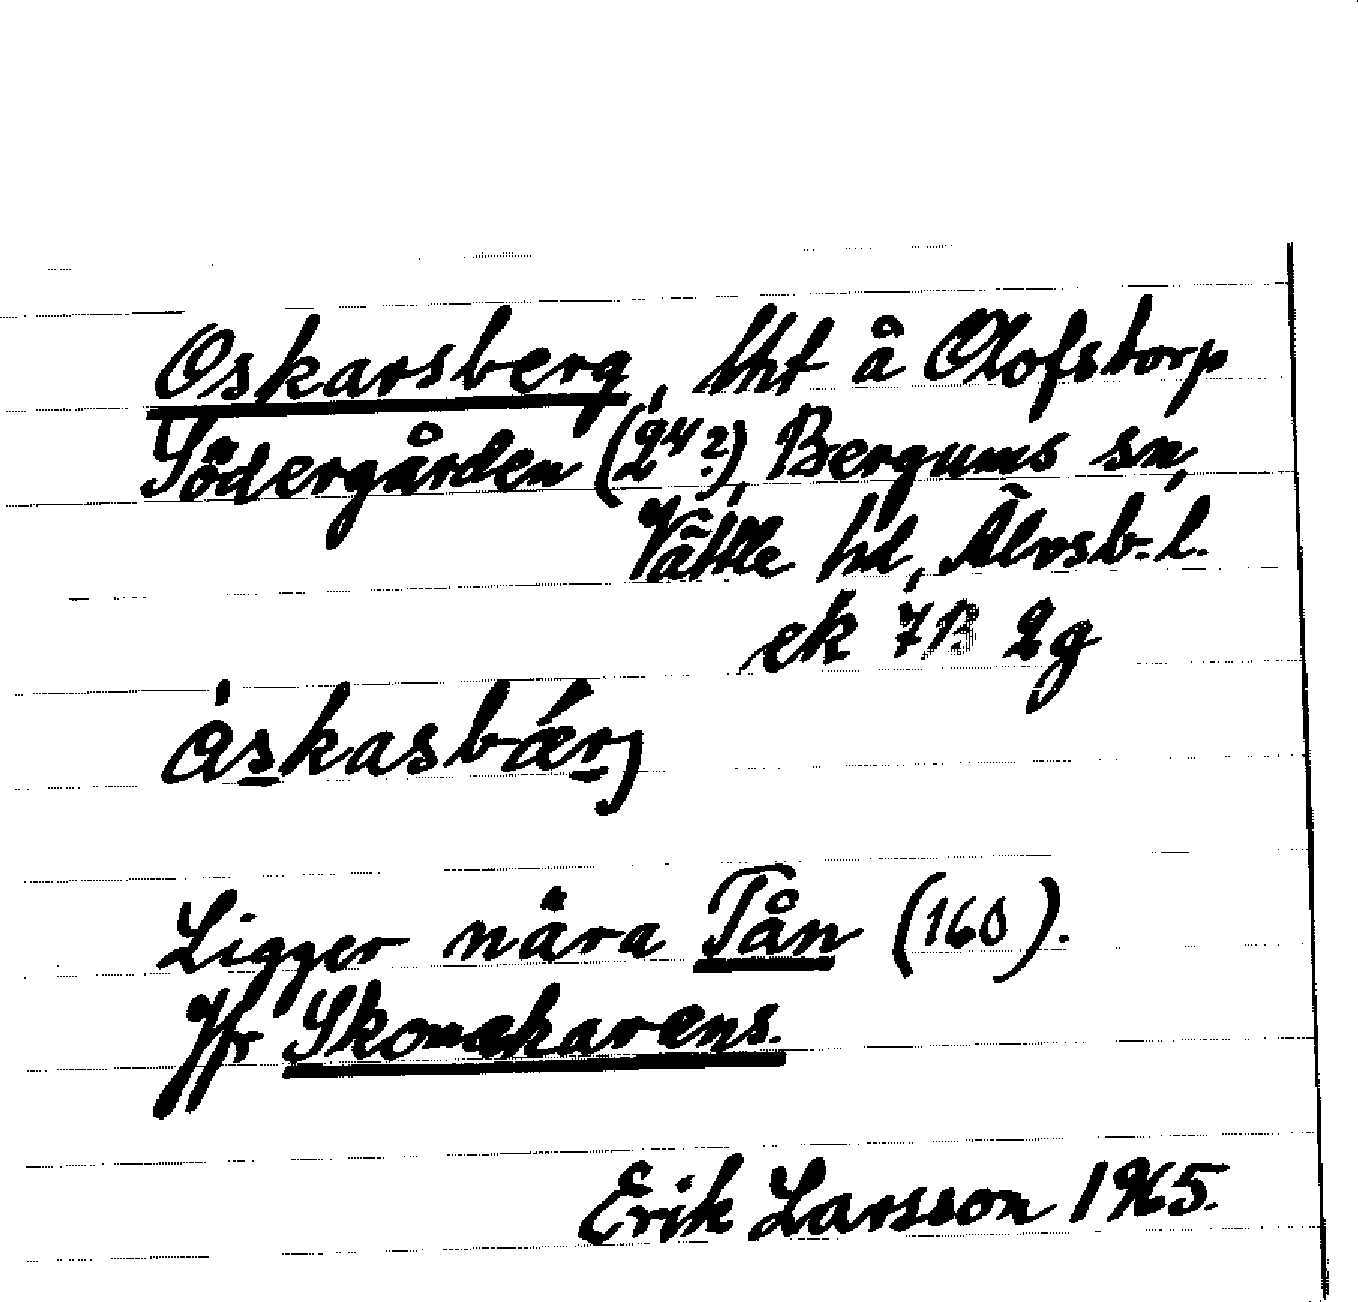 Oskarsberg, lht å Olofstorp
Södergården (24?), Bergums sn,
Vättle hd, Älvsb. l.
ek 7B 2g
åskasbǽrj
Ligger nära Tån (160).
Jfr Skomakarens.
Erik Larsson 1965.